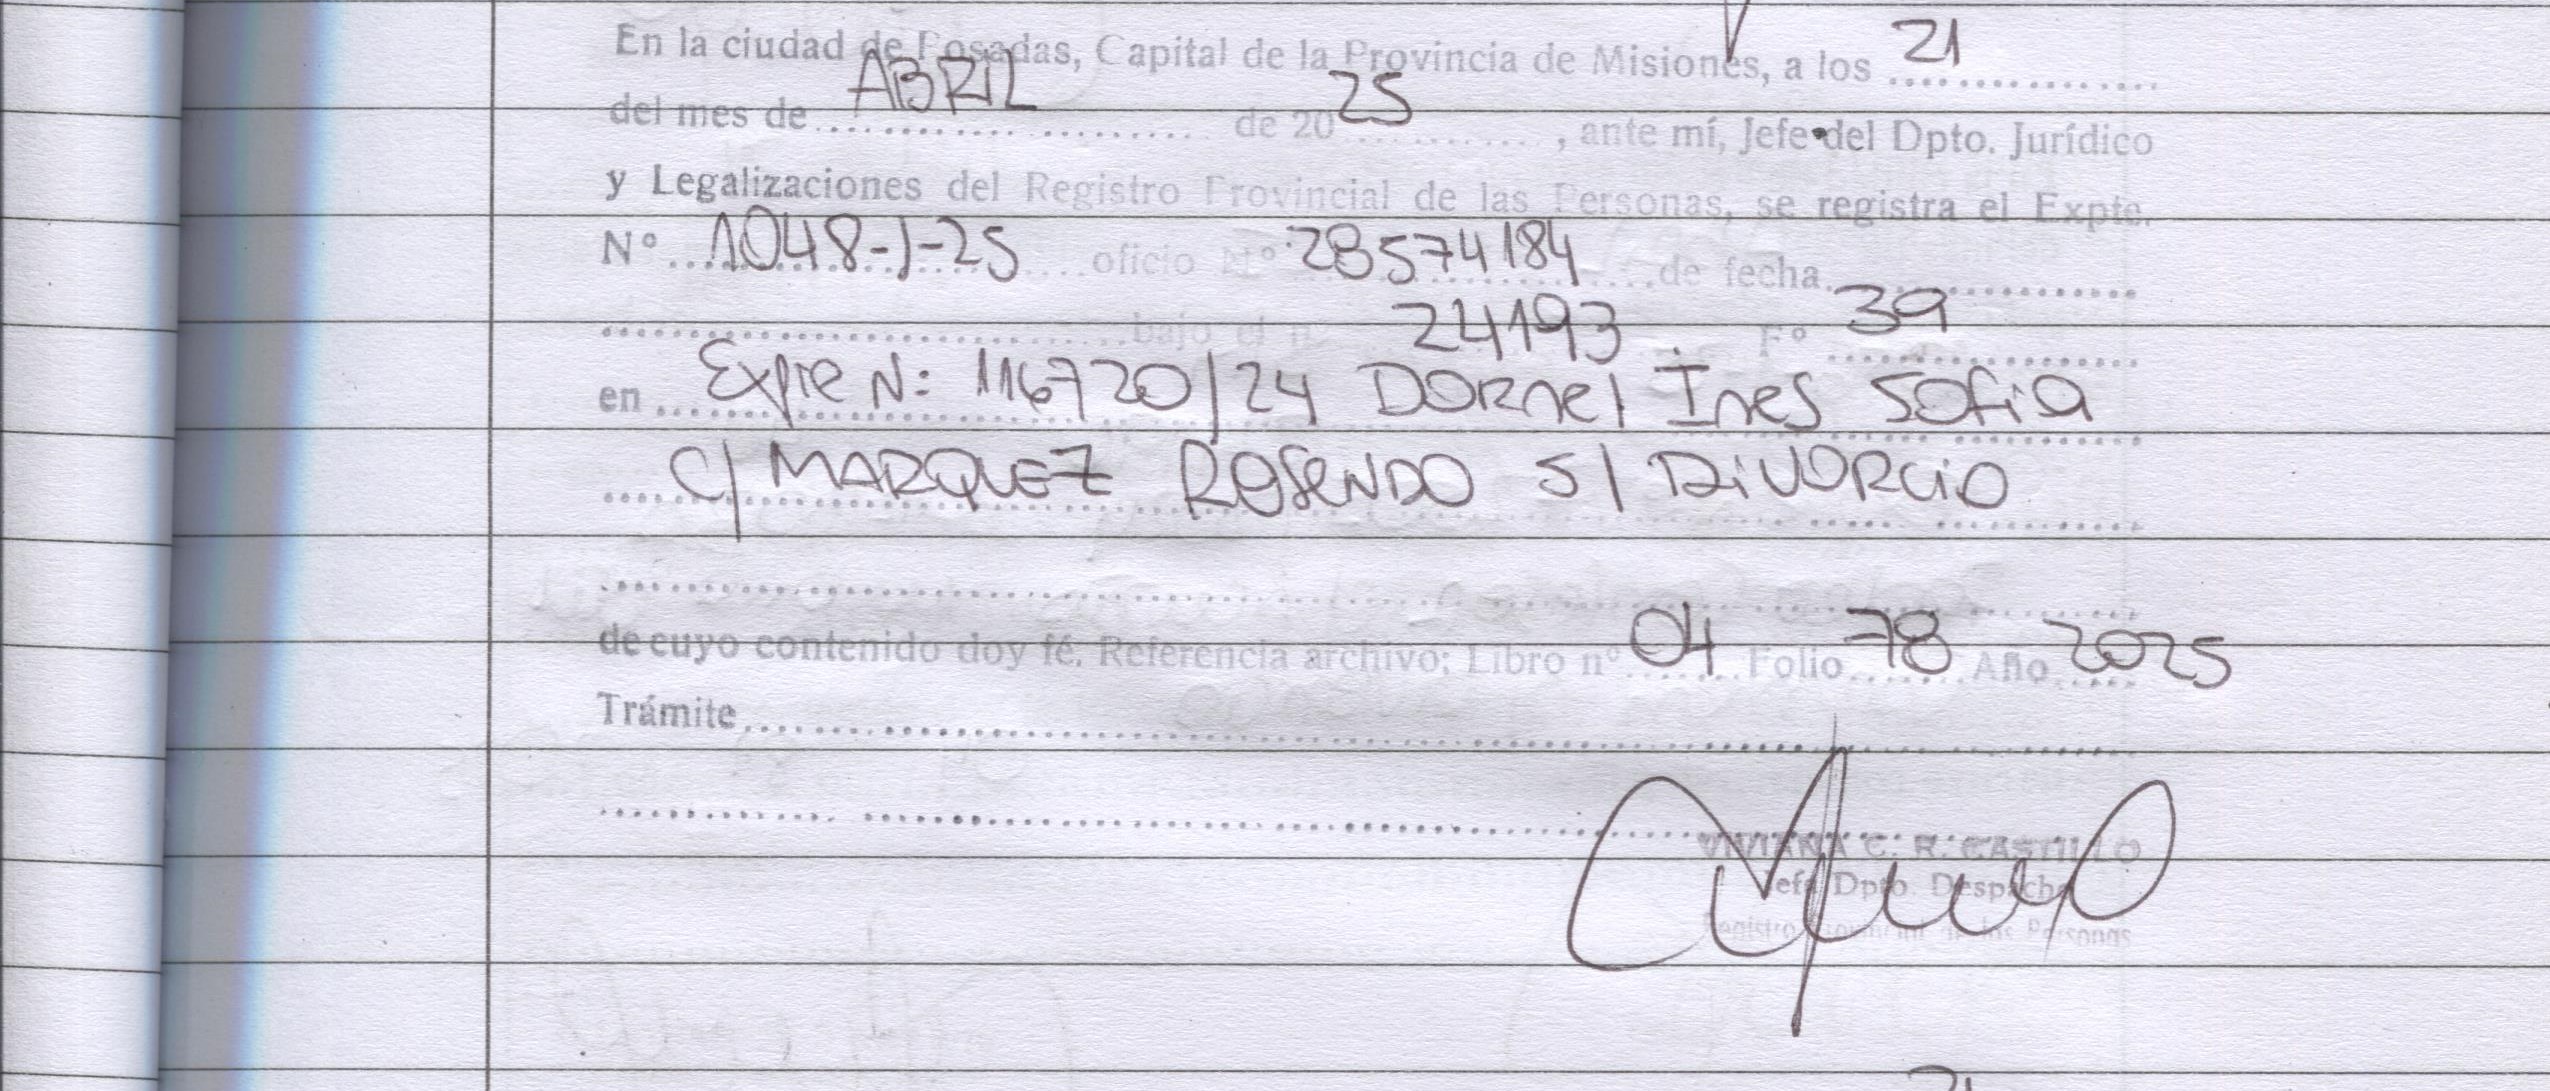 En la ciudad de Posadas, Capital de la Provincia de Misiones, a los 21
del mes de ABRIL de 2025, ante mí, Jefe del Dpto. Jurídico
y Legalizaciones del Registro Provincial de las Personas, se registra el Expte.
Nº 1048-J-25 oficio Nº 28574184 de fecha
bajo el n 24193. Fº 39
en Expte N: 116720/24 DORNEl Ines Sofia
C/ MARQUEZ ROSENDO S/ DiVORCiO
de cuyo contenido doy fé. Referencia archivo; Libro nº 04 Folio 78 Año 2025
Trámite
VIVIANA C. R. CASTILLO
Jefa Dpto. Despacho
Registro Provincial de las Personas